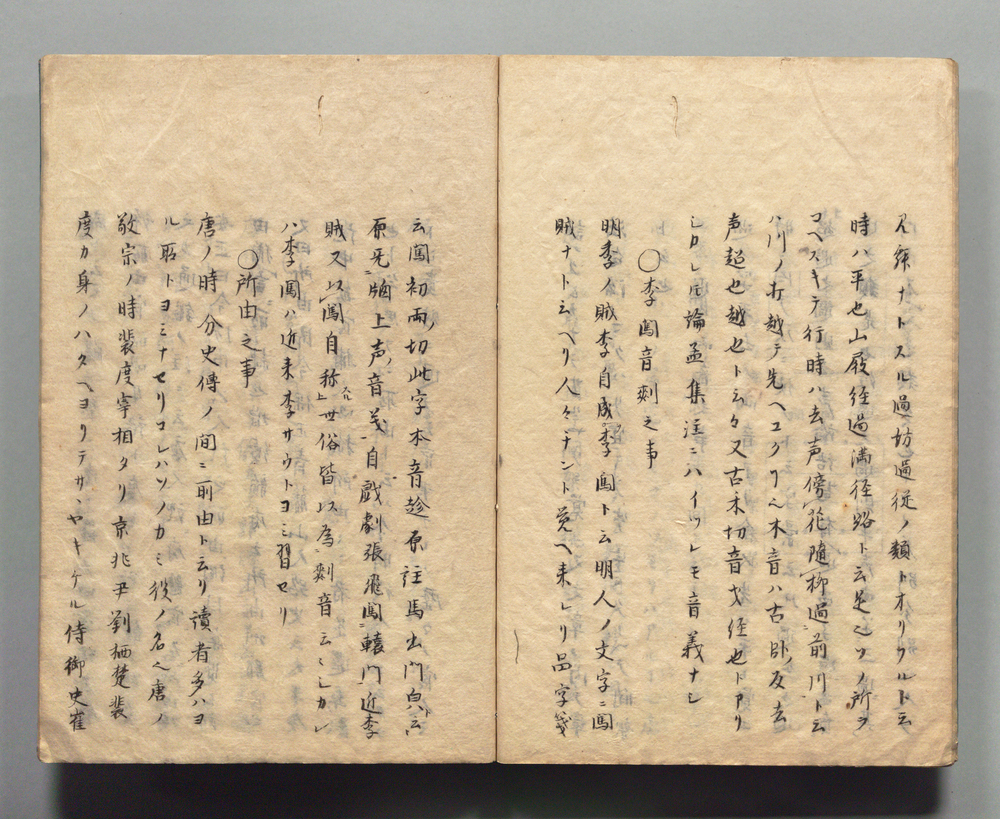 ナトスル過坊過従ノ類トオリワルト云
時ハ平也山屐経過満径路ト云是也ソノ所ヲ
コヘスキテ行時ハ去声傍花随柳過前川ト云
ハ川ノ打越テ先ヘユクリ也本音ハ古臥ノ反去
声超也越也ト云々又古禾切音戈経也トアリ
シカレ𪜈論孟集注ニハイツレモ音義ナシ
〇李闖音剡之事
明季ノ賊李自成李闖ト云明人ノ文字ニ闖
賊ナト云ヘリ人々ナント覚ヘ来レリ品字箋
云闖初両切此字本音趁原註馬出門皃云
原旡牕上声音義自戯劇張飛闖轅門近李
賊ス以闖自称世俗皆以為剡音云々シカレ
ハ李闖ハ近来李サウトヨミ習セリ
〇所由之事
唐ノ時分史傳ノ間ニ所由ト云リ讀者多ハヨ
ル所トヨミナセリコレハソノカミ役ノ名也唐ノ
敬宗ノ時裴度宰相タリ京兆尹劉栖楚裴
度カ身ノハタヘヨリテサヽヤキケル侍御史崔